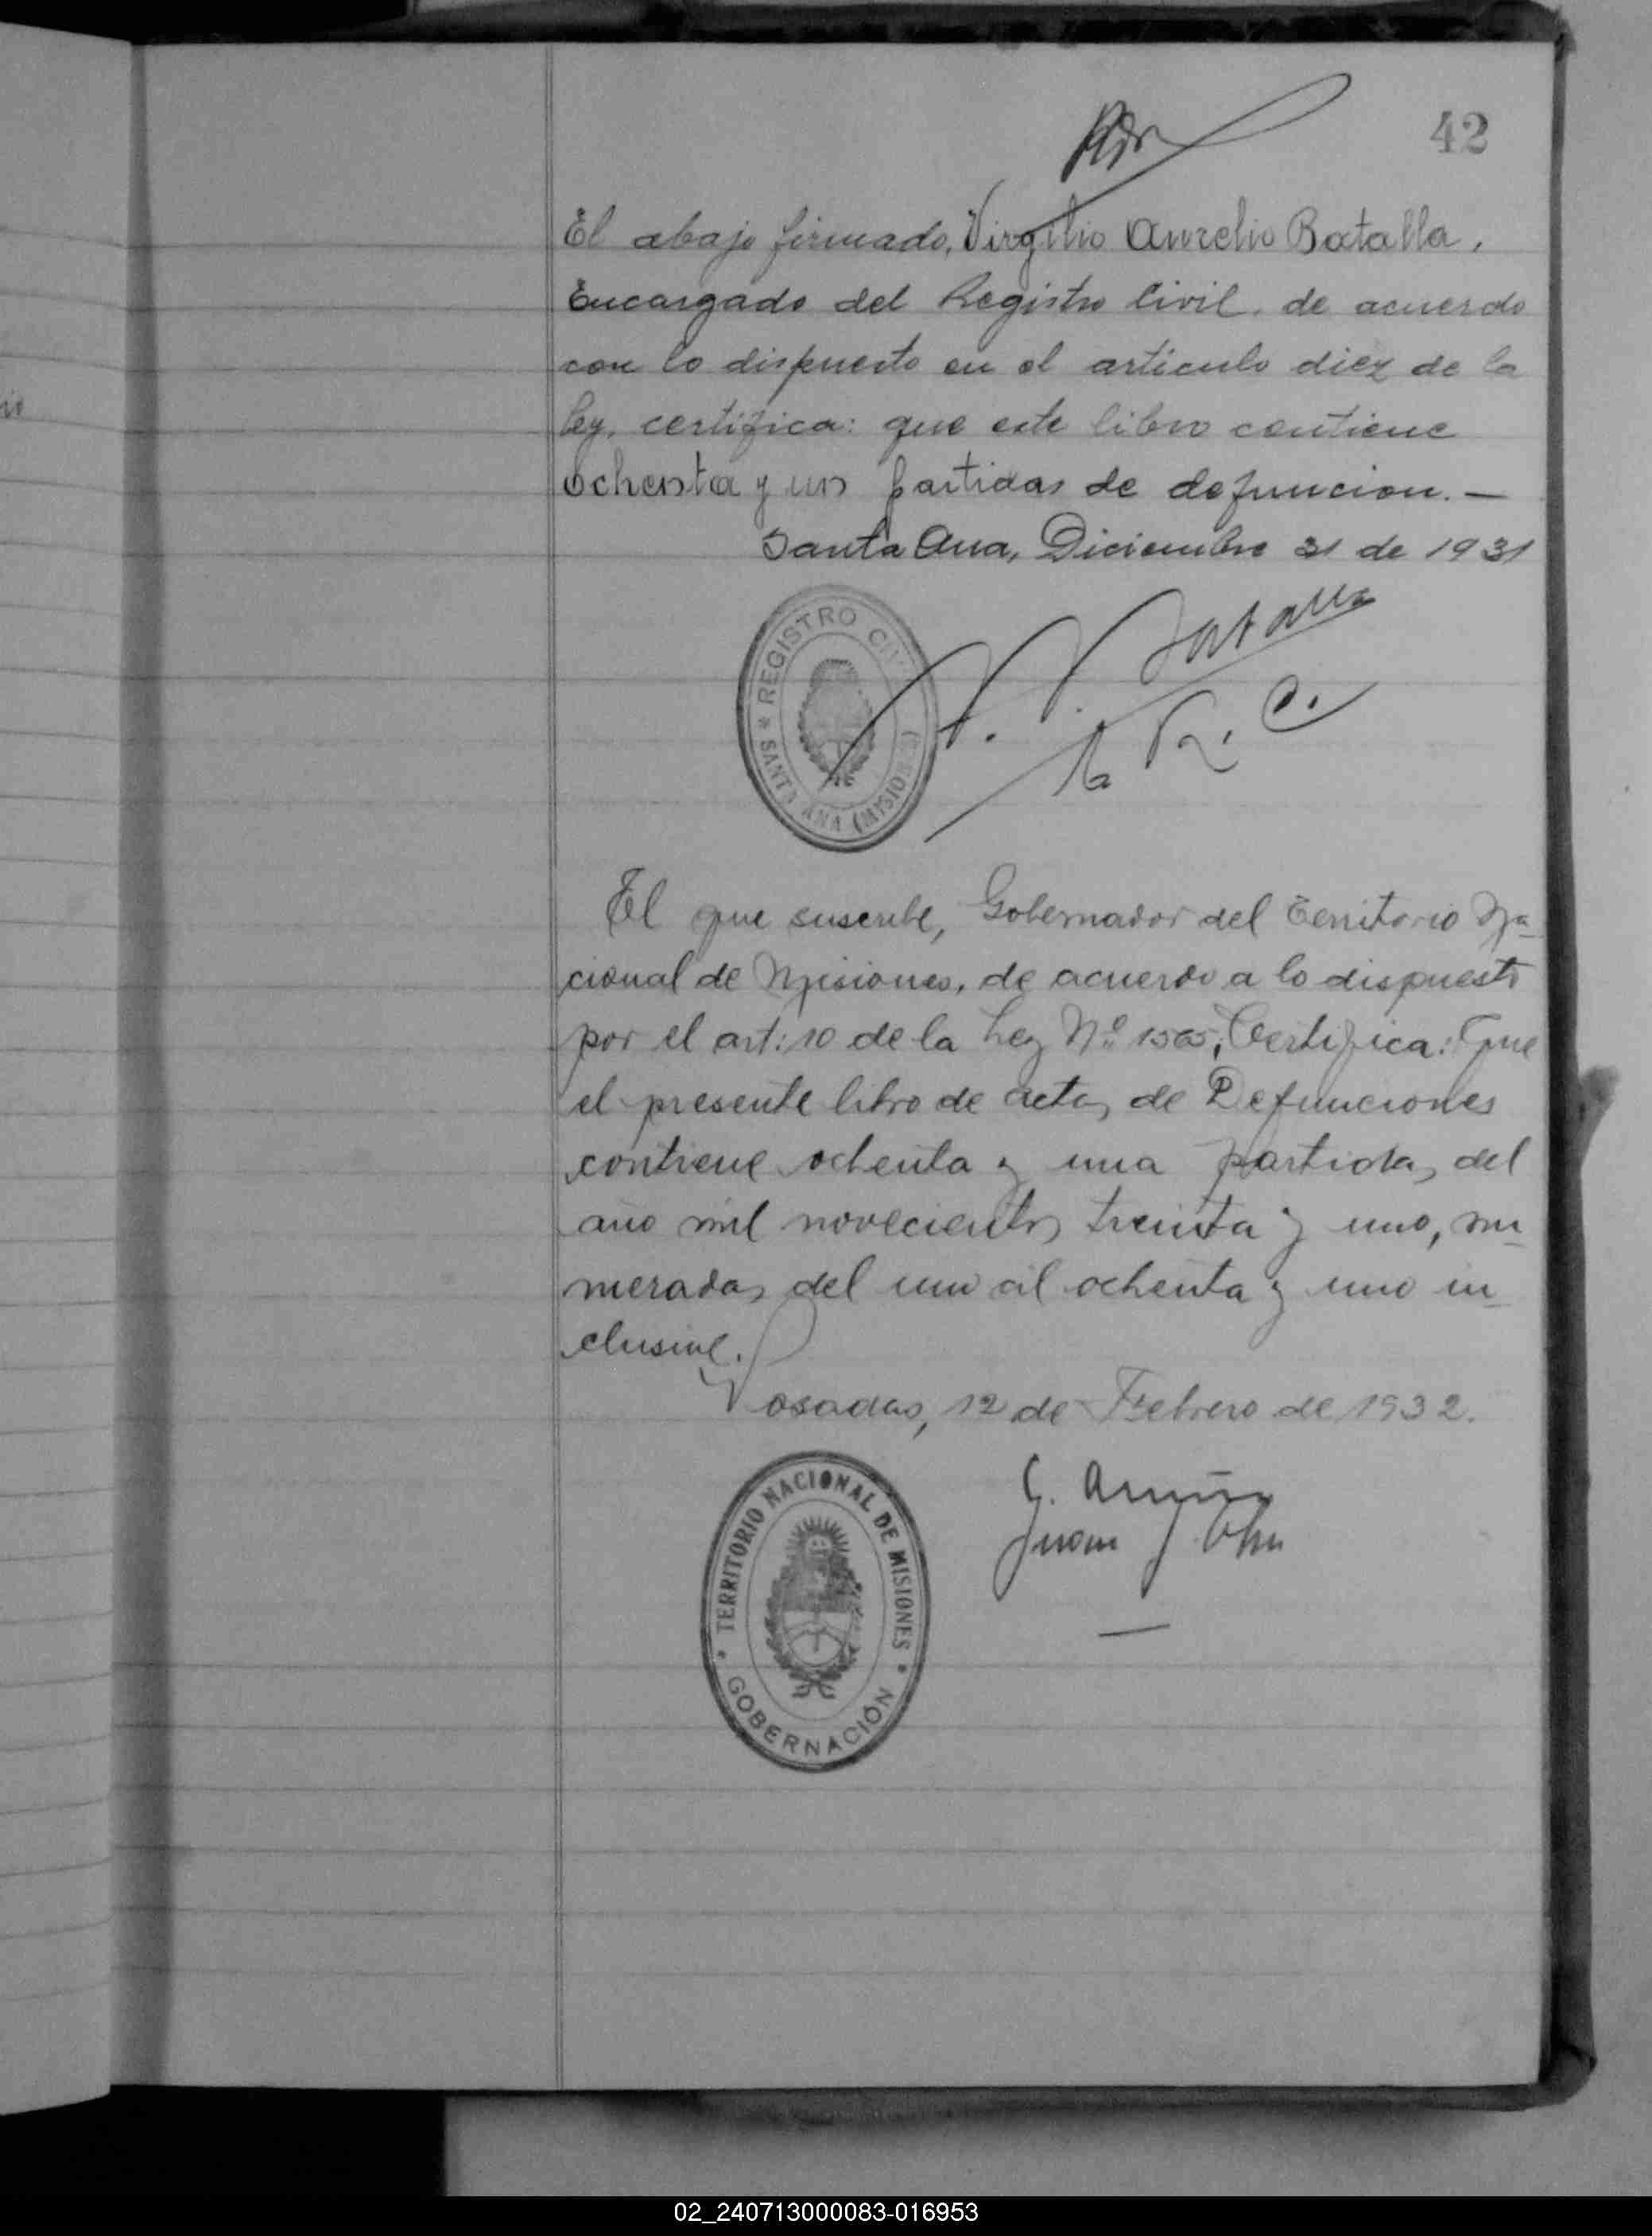 42
El abajo firmado, Virgilio Aurelio Batalla,
Encargado del Registro Civil, de acuerdo
con lo dispuesto en el articulo diez de la
ley, certifica: que este libro contiene
ochenta y un partidas de defuncion. —
Santa Ana, Diciembre 31 de 1931
REGISTRO CIVIL
SANTA ANA (MISIONES)
Batalla
R. C.
El que suscribe, Gobernador del Territorio Na-
cional de Misiones, de acuerdo a lo dispuesto
por el art: 10 de la Ley Nº 1565, Certifica: Que
el presente libro de actas de Defunciones
contiene ochenta y una partidas del
año mil novecientos treinta y uno, nu-
meradas del uno al ochenta y uno in-
clusive.
Posadas, 12 de Febrero de 1932.
TERRITORIO NACIONAL DE MISIONES
GOBERNACIÓN
Juan J.
02_240713000083-016953